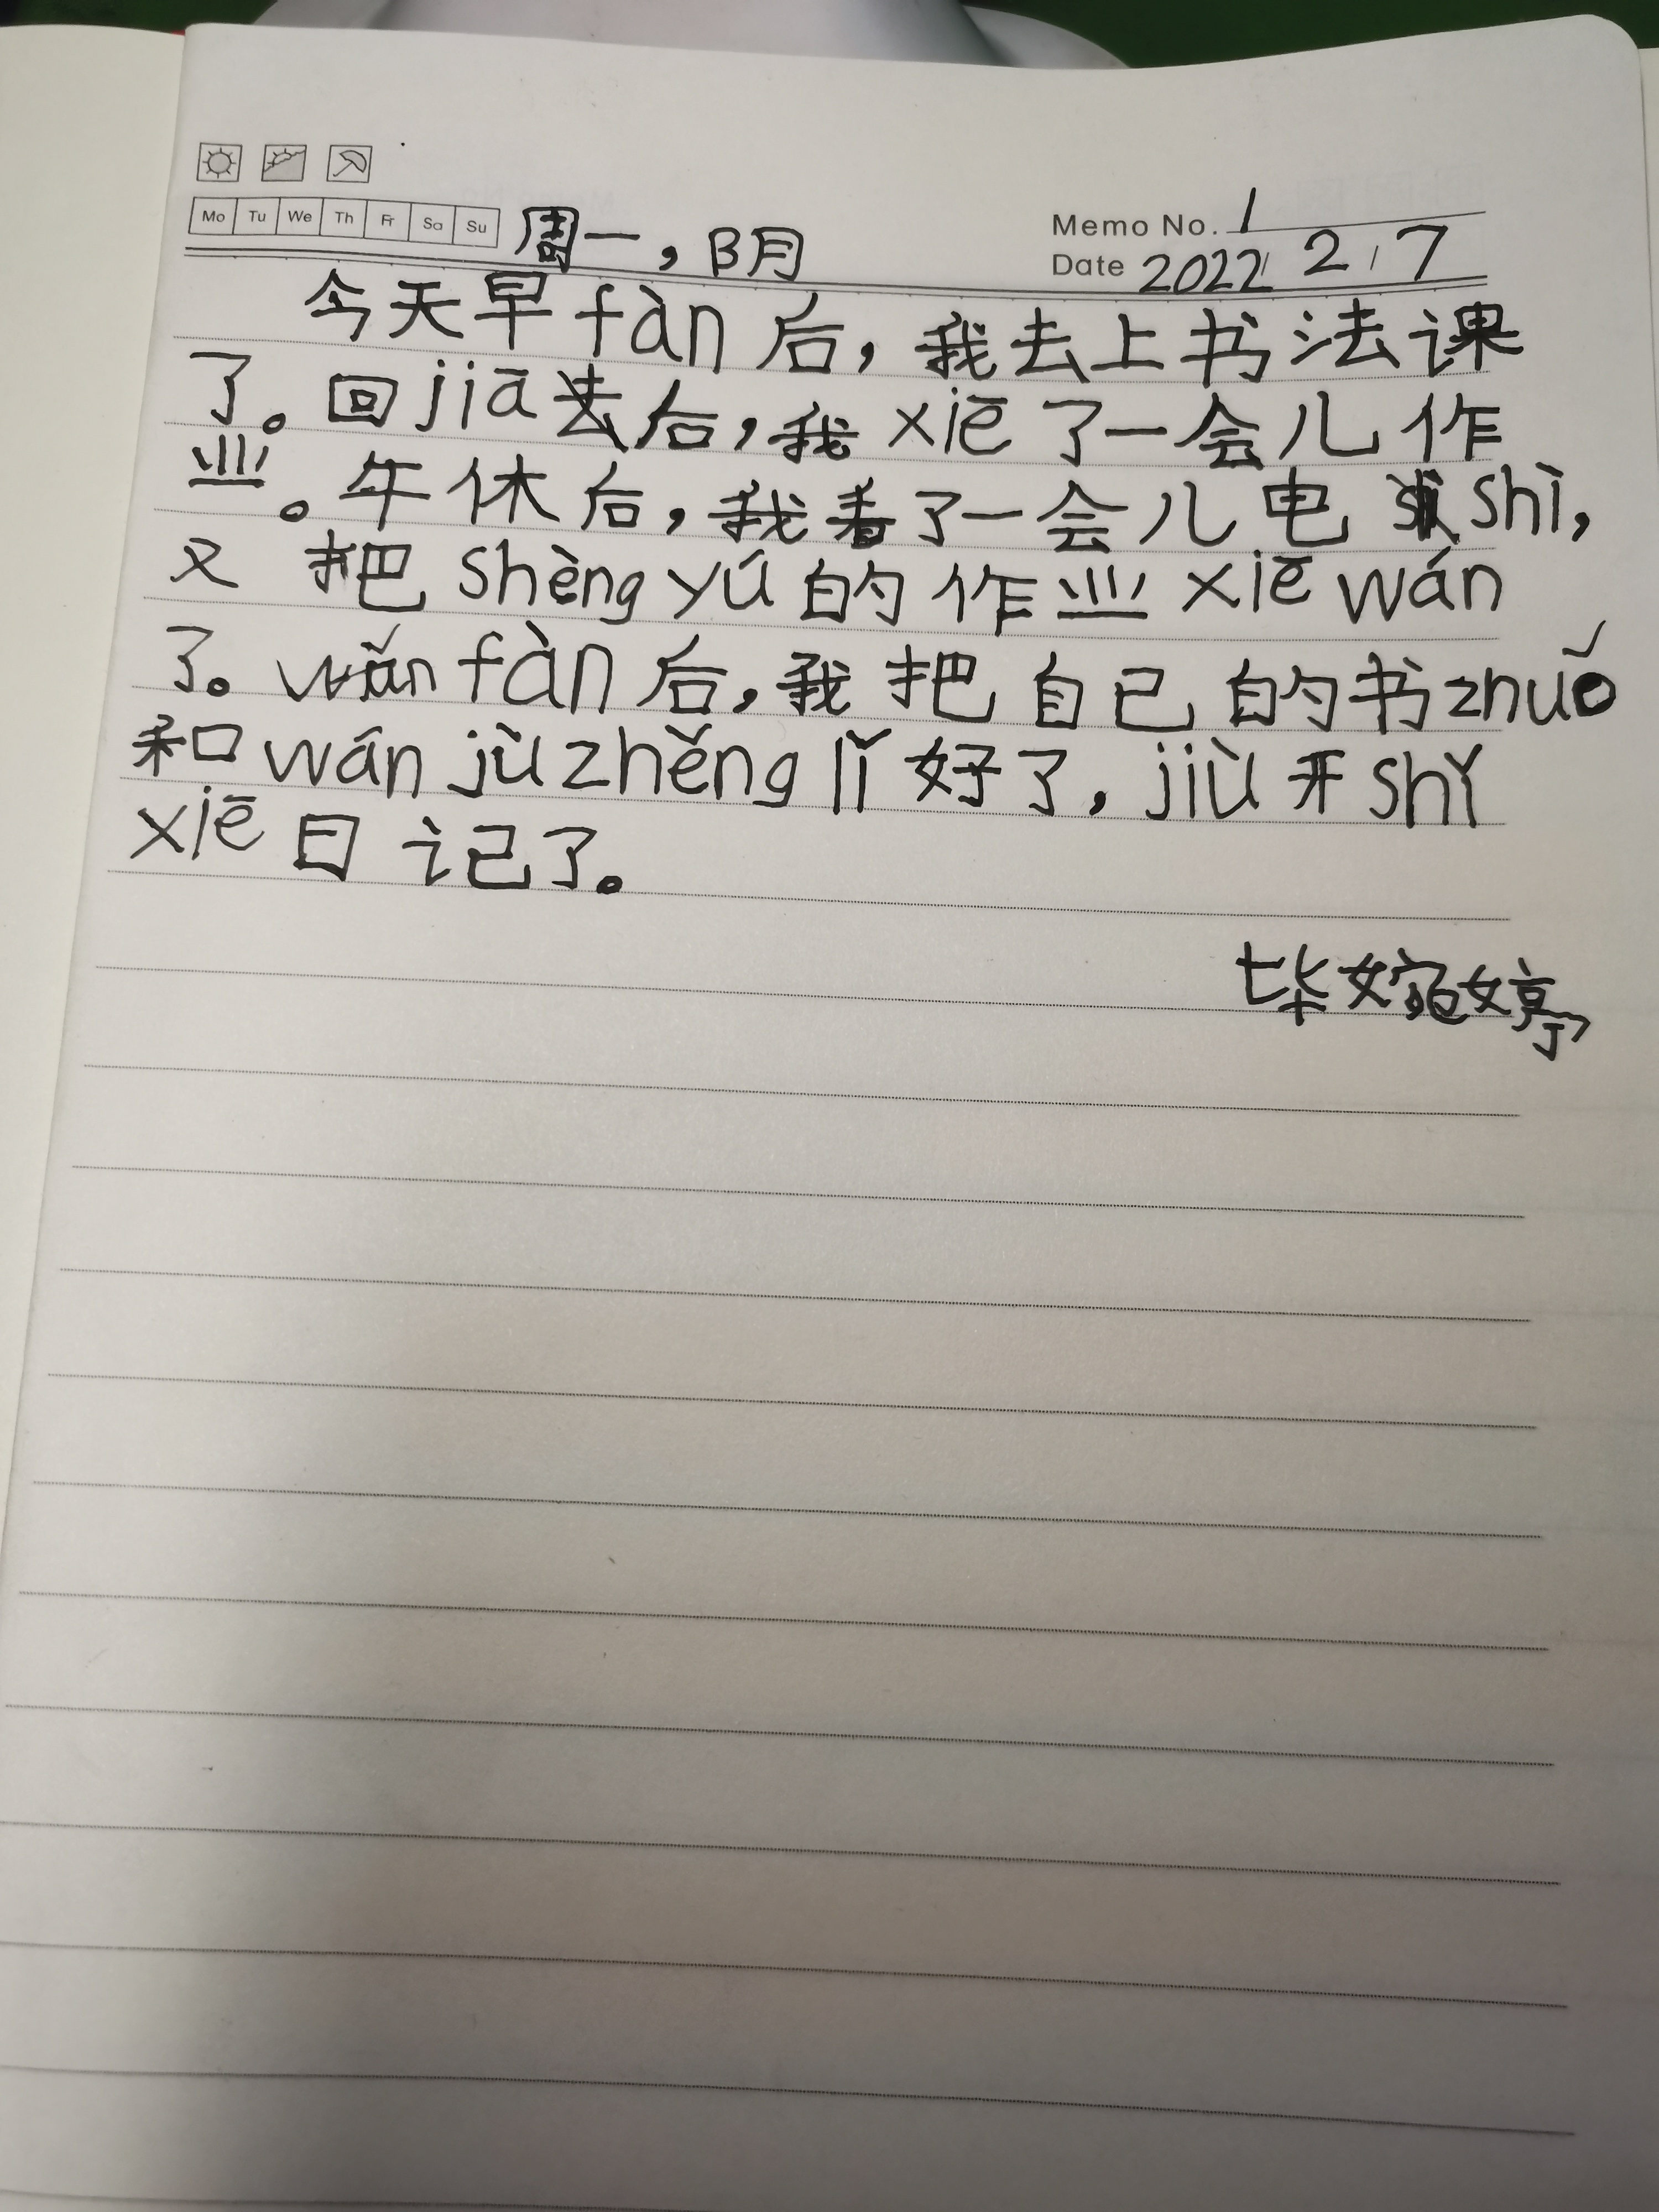 Mo Tu We Th Fr Sa Su 周一，日月 Memo No. 1
Date 2022 2 7
今天早fàn后，我去上书法课
了。回jiā去后，我xiē了一会儿作
业。午休后，我看了一会儿电shì，
又把shèngyú的作业xiēwán
了。wǎnfàn后，我把自己的书zhuǒ
和wánjùzhěnglǐ好了，jiù开shǐ
xiē日记了。
毕婉婷